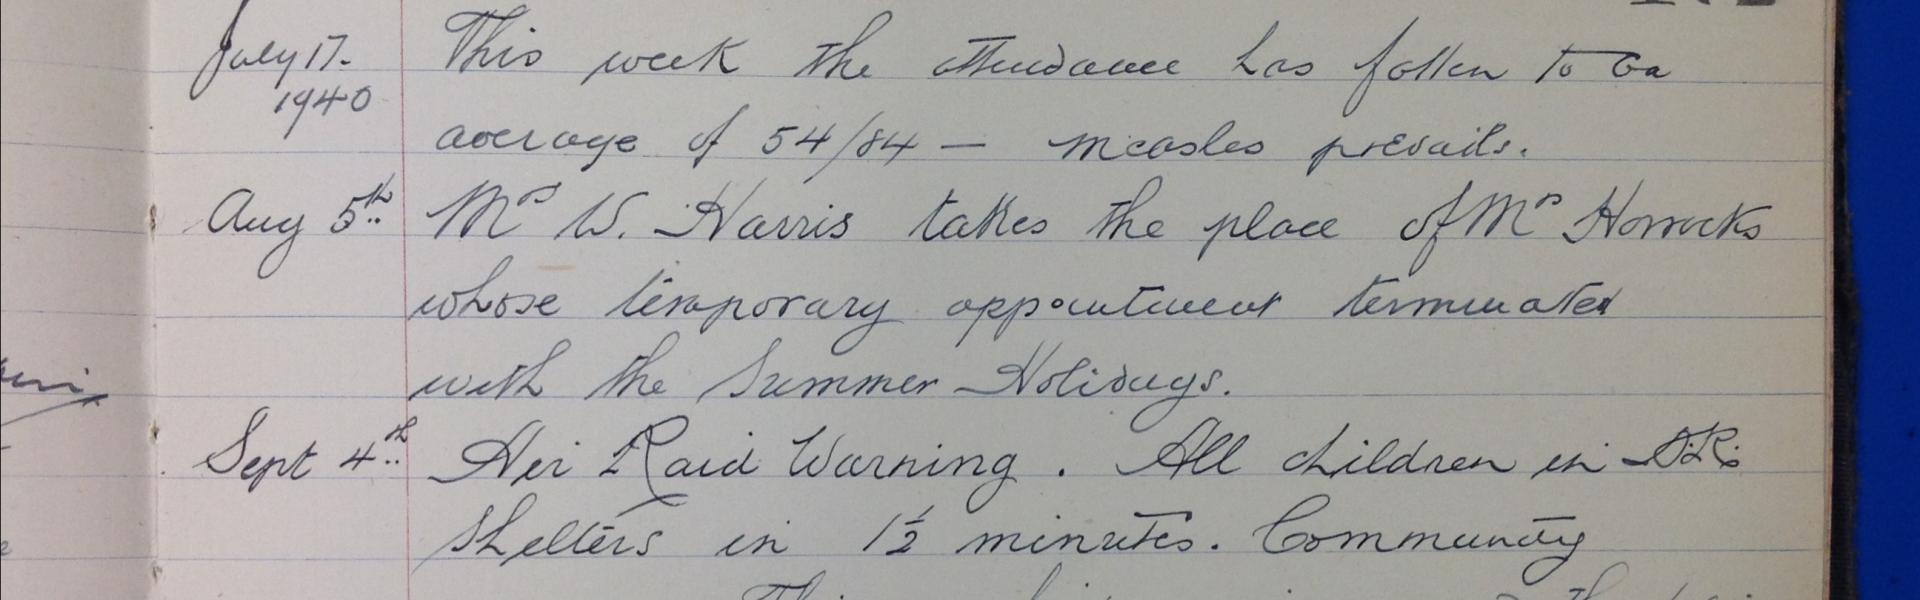 July 17. This week the attendance has fallen to an
1940
average of 54/84 — measles prevails.
Aug 5th Mrs W. Harris takes the place of Mrs Horrocks
whose temporary appointment terminated
with the Summer Holidays.
Sept 4th Air Raid Warning. All children in A.R.
Shelters in 1½ minutes. Community